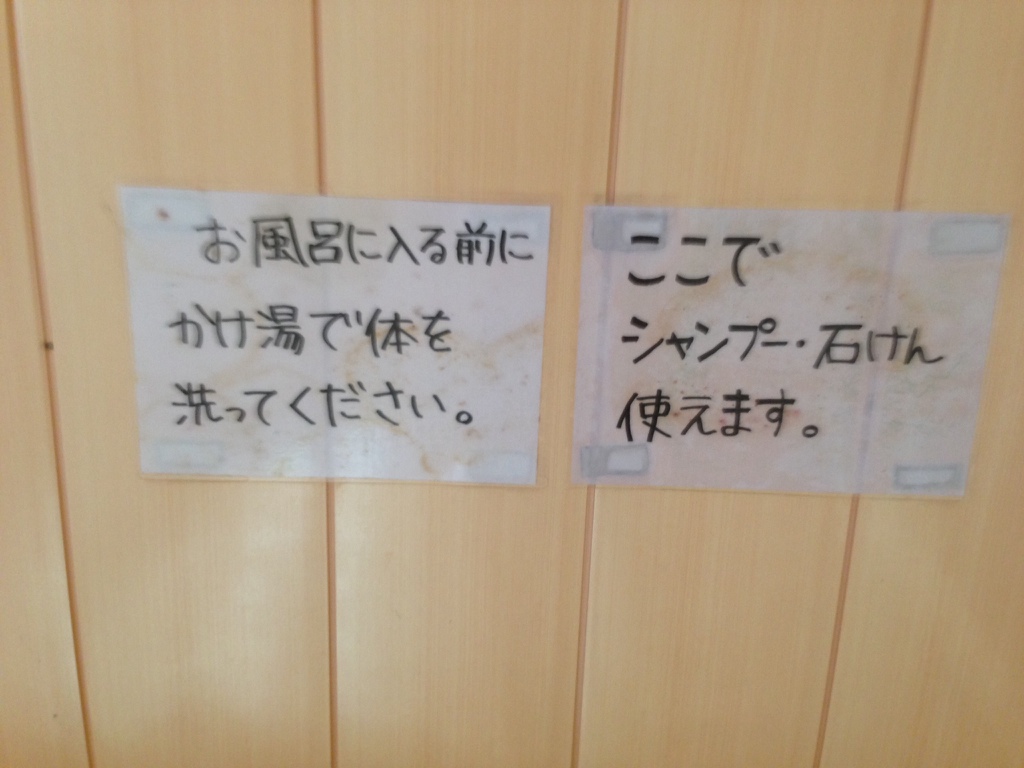 お風呂に入る前に
かけ湯で体を
洗ってください。
ここで
シャンプー・石けん
使えます。